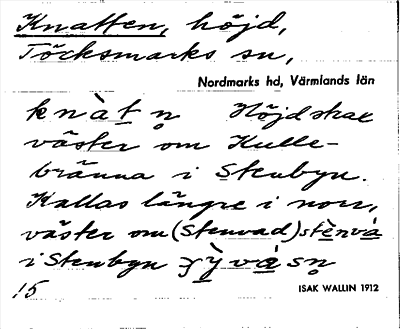 Knatten, höjd,
Töcksmarks sn,
Nordmarks hd, Värmlands län
knàtn̥ Höjd strax
väster om Kulle-
bränna i Stenbyn.
Kallas längre i norr,
väster om (Stenvad) stènvà
i Stenbyn
15
ISAK WALLIN 1912